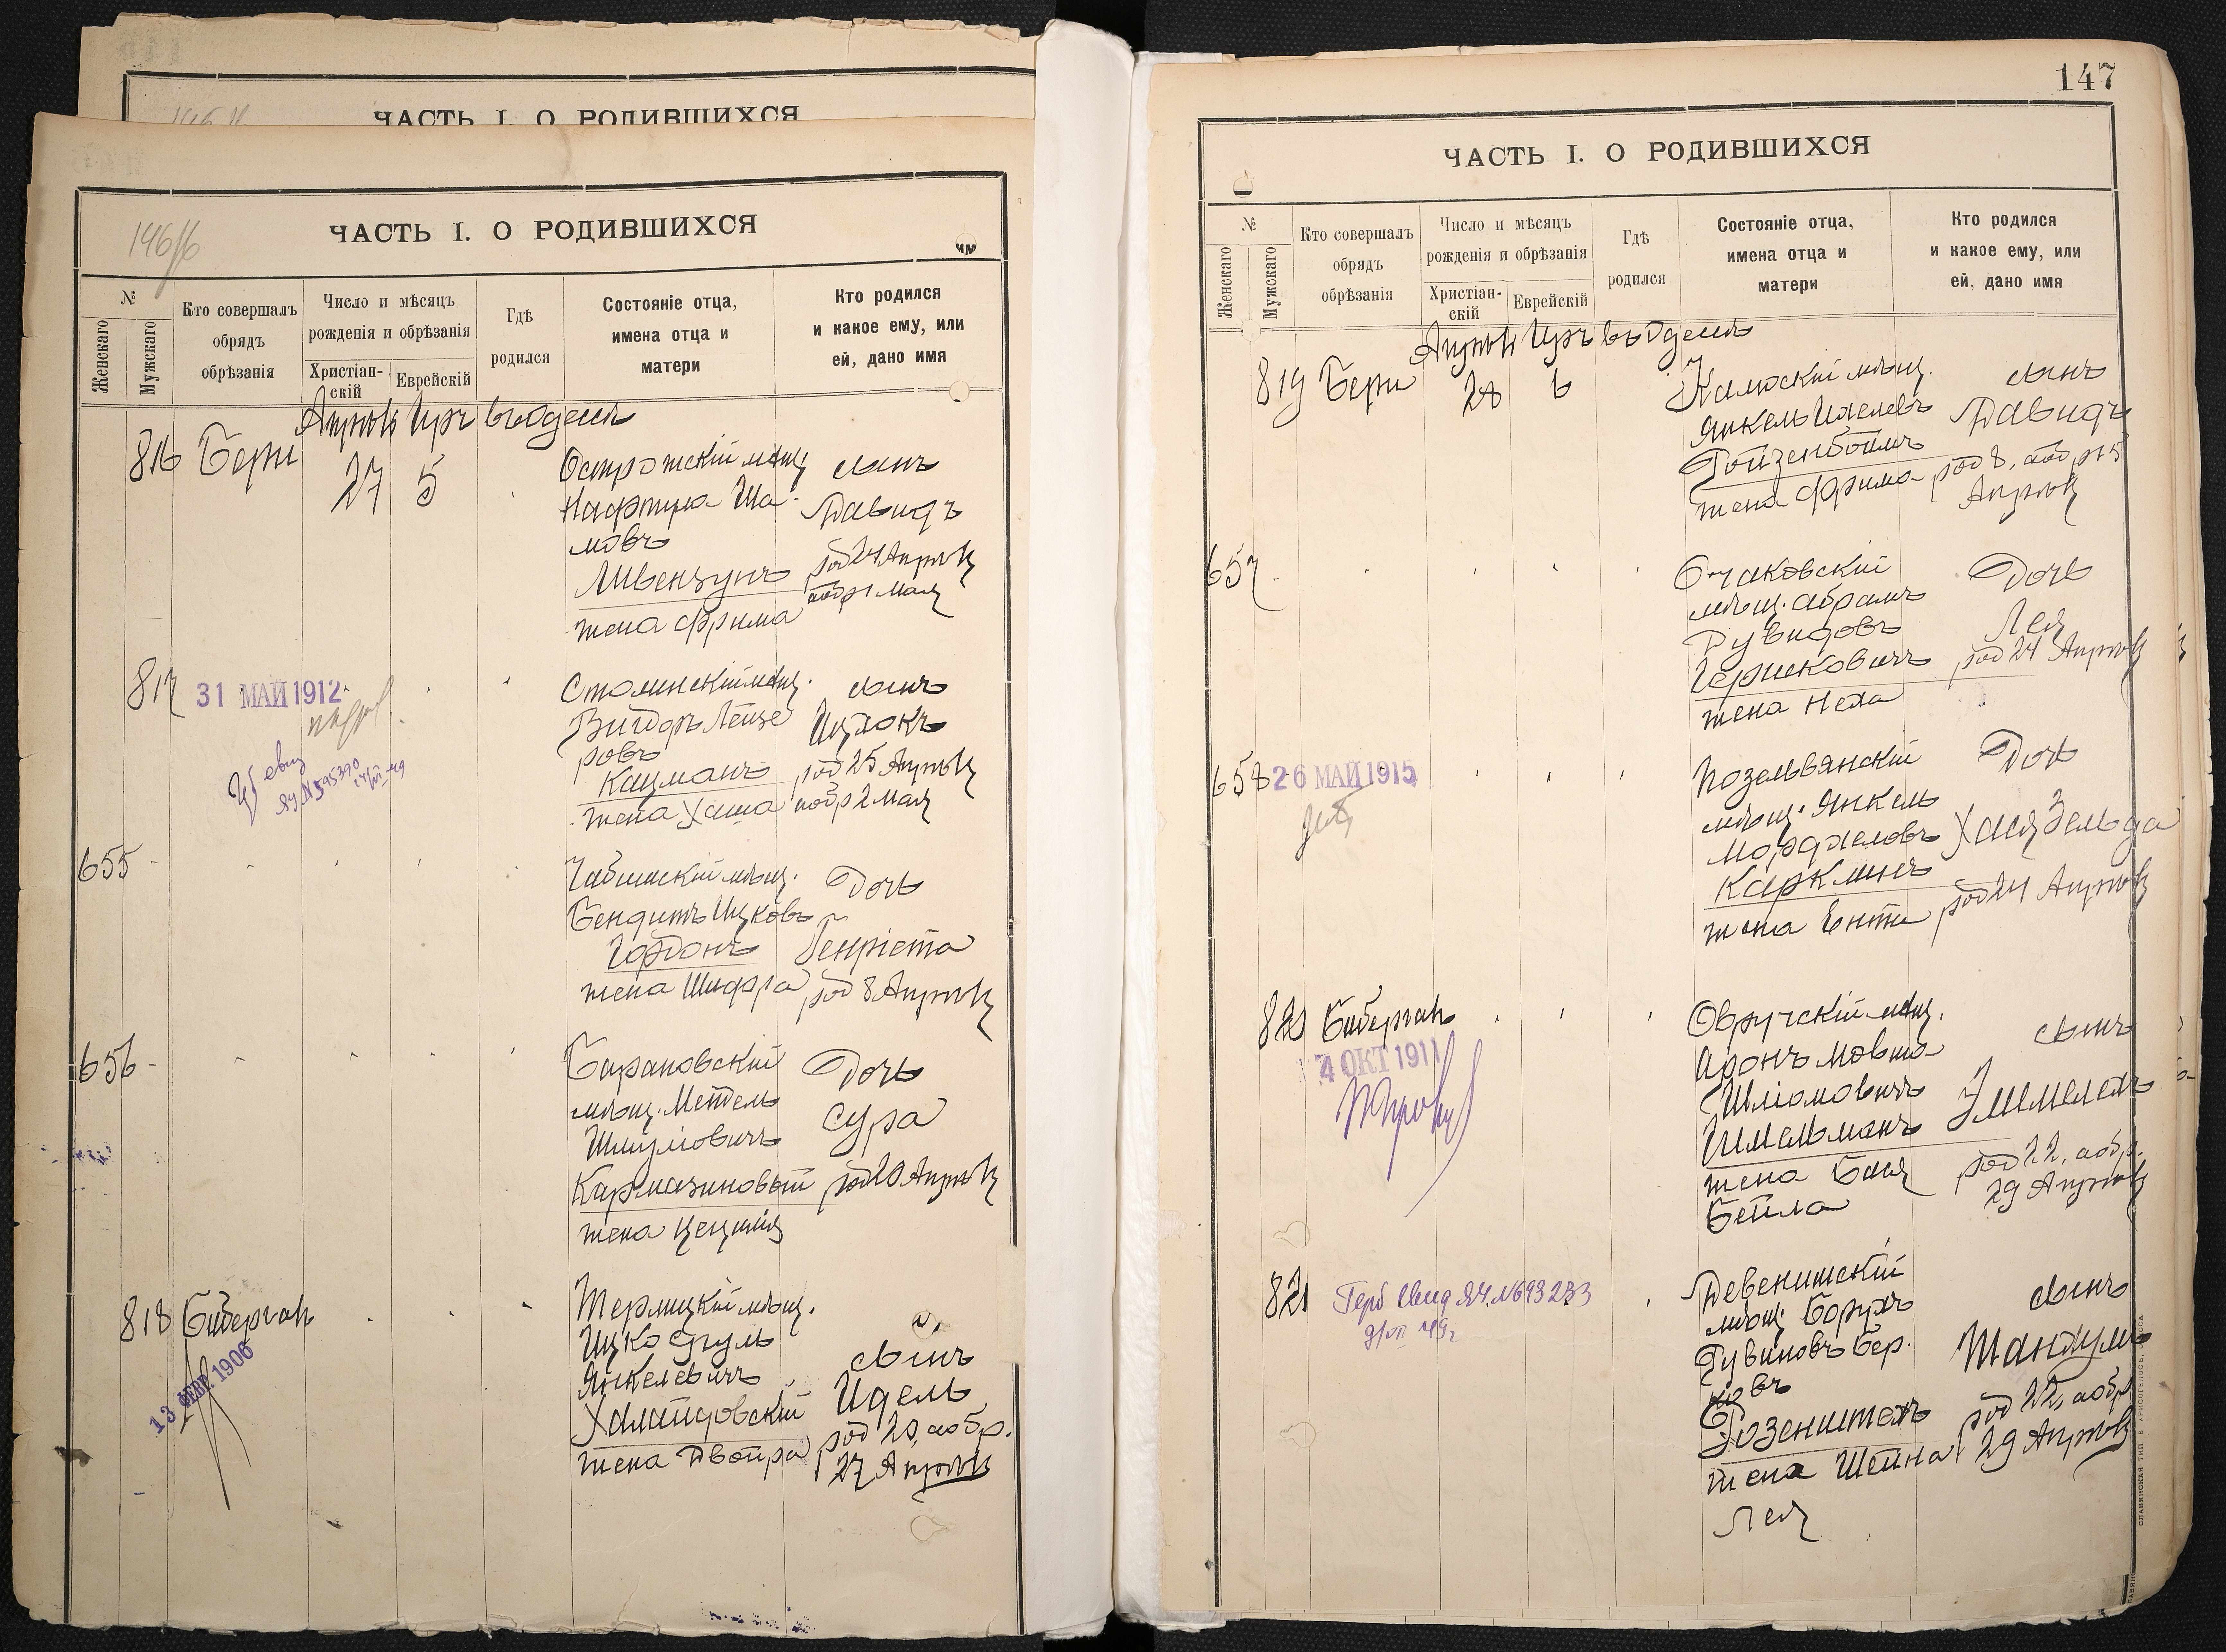 ЧАСТЬ I. О РОДИВШИХСЯ
146/б
ЧАСТЬ I. О РОДИВШИХСЯ
№
Женскаго
Мужскаго
Кто совершалъ
обрядъ
обрѣзанія
Число и мѣсяцъ
рожденія и обрѣзанія
Христіан-
скій
Еврейскій
Гдѣ
родился
Состояніе отца,
имена отца и
матери
Кто родился
и какое ему, или
ей, дано имя
Апрѣль Іиръ въ Одессѣ
816 Бери 27 5
Острожскій мѣщ.
Нафтула Ша-
мовъ
жена Фрима
сынъ
Давидъ
род 24 Апрѣля
аобр 1 Мая
817
31 МАЙ 1912
ЯУ № 595390
Столинскій мѣщ.
Вигдоръ Лейзе
ровъ
Кацманъ
жена Хаша
сынъ
Ицхокъ
род 25 Апрѣля
аобр 2 Мая
655 -
мѣщ.
Бендитъ Ицковъ
Гордонъ
жена Шифра
Дочь
Генріета
род 8 Апрѣля
656 -
Барановскій
мѣщ. Мендель
Шмулювичъ
Кармазиновый
жена Цецилія
Дочь
Сура
род 20 Апрѣля
818 Биберган
13 ФЕВР. 1906
Терлицкій мѣщ.
Ицко Сруль
Янкелевичъ
жена Двойра
сынъ
Идель
род 20, аобр.
27 Апрѣля
147
ЧАСТЬ I. О РОДИВШИХСЯ
№
Женскаго
Мужскаго
Кто совершалъ
обрядъ
обрѣзанія
Число и мѣсяцъ
рожденія и обрѣзанія
Христіан-
скій
Еврейскій
Гдѣ
родился
Состояніе отца,
имена отца и
матери
Кто родился
и какое ему, или
ей, дано имя
Апрѣль Іиръ въ Одессѣ
819 Бери 28 6
мѣщ.
Янкель
Гойзенбоимъ
жена Фрима
сынъ
Давидъ
род 8, аобр 15
Апрѣля
657 -
Очаковскій
мѣщ. Абрамъ
Дувидовъ
Гершковичъ
жена Неха
Дочь
Лея
род 24 Апрѣля
658
26 МАЙ 1915
мѣщ. Янкель
Мордхелевъ
Карклинъ
жена Ента
Дочь
Хая Зельда
род 24 Апрѣля
820 Биберган
4 ОКТ 1911
Овручскій мѣщ.
Аронъ Мовша
Шліомовичъ
Шмельманъ
жена Бася
Бейла
сынъ
род 22, аобр.
29 Апрѣля
821
Герб Свид ЯЧ. №693233
Девенишскій
мѣщ. Борухъ
Рувиновъ Бер-
ковъ
Розенштейнъ
жена Шейна
Лея
сынъ
род 22, аобр
29 Апрѣля